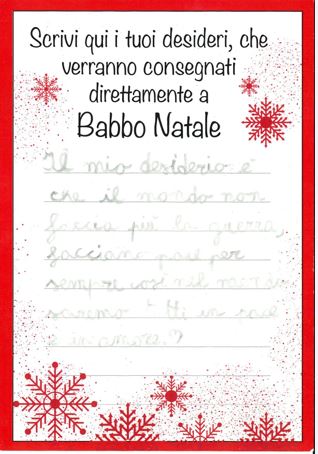 Scrivi qui i tuoi desideri, che
verranno consegnati
direttamente a
Babbo Natale
Il mio desiderio è
che il mondo non
faccia più la guerra,
facciano pace per
sempre così nel mondo
saremo tti in pace
e in amore.